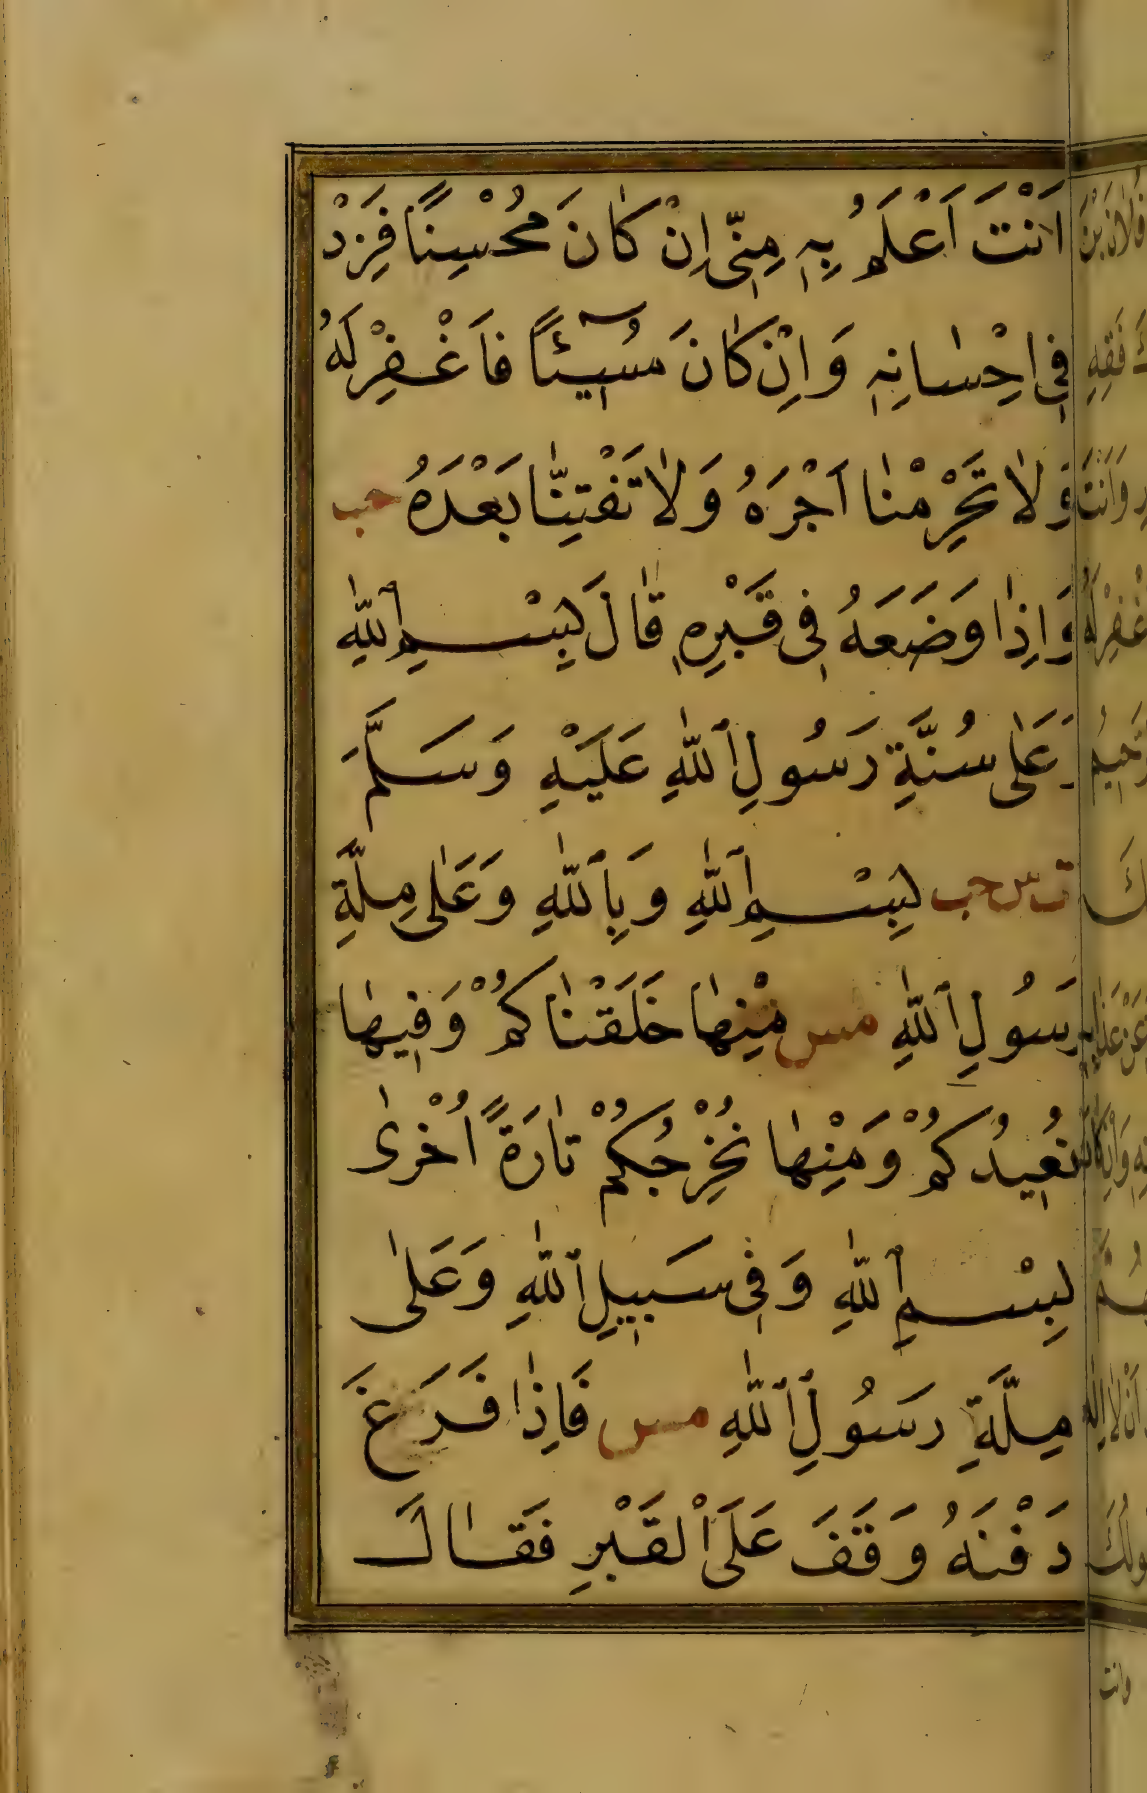 اَنْتَ اَعْلَمُ بِهٖ مِنّٖى اِنْ كَانَ مُحْسِنًا فَزِدْ
فٖى اِحْسَانِهٖ وَاِنْ كَانَ مُسٖٓيئًا فَاَغْفِرْ لَهُ
وَلَا تَحْرِمْنَا اَجْرَهُ وَلَا تَفْتِنَّا بَعْدَهُ حب
وَاِذَا وَضَعَهُ فٖى قَبْرِهٖ قَالَ بِسْمِ اللّٰهِ
وَعَلٰى سُنَّةِ رَسُولِ اللّٰهِ عَلَيْهِ وَسَلَّمَ
ت س حب بِسْمِ اللّٰهِ وَبِاللّٰهِ وَعَلٰى مِلَّةِ
رَسُولِ اللّٰهِ مس مِنْهَا خَلَقْنَاكُمْ وَفٖيهَا
نُعٖيدُكُمْ وَمِنْهَا نُخْرِجُكُمْ تَارَةً اُخْرٰى
بِسْمِ اللّٰهِ وَفٖى سَبٖيلِ اللّٰهِ وَعَلٰى
مِلَّةِ رَسُولِ اللّٰهِ مس فَاِذَا فَرَغَ
دَفْنَهُ وَقَفَ عَلَى الْقَبْرِ فَقَالَ
وانت